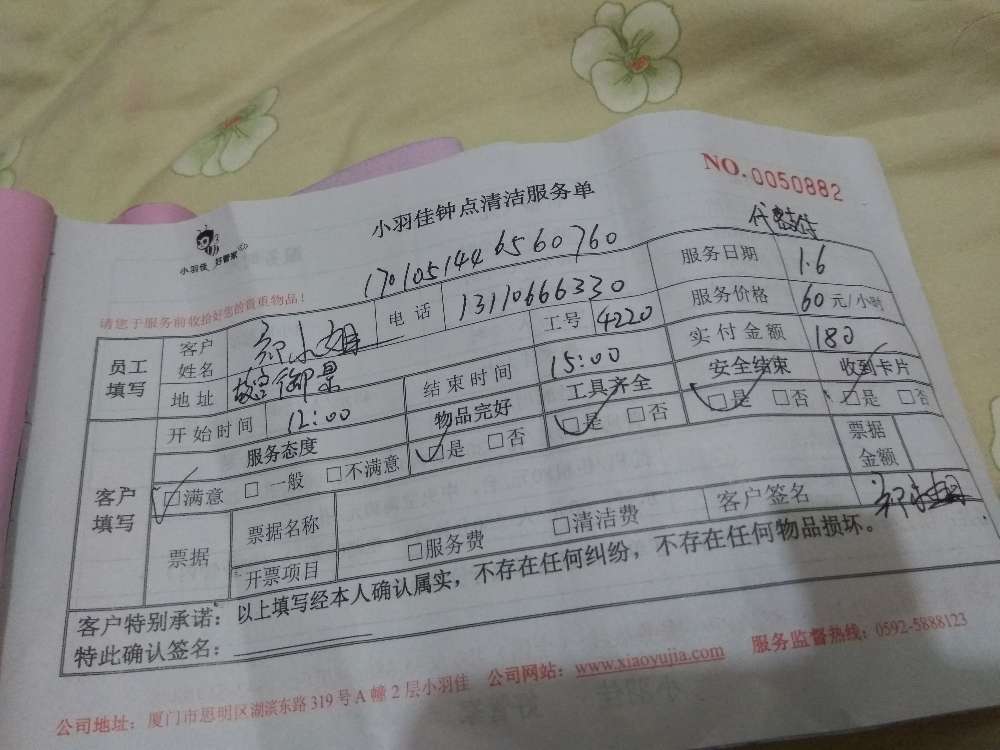 NO.0050882
小羽佳钟点清洁服务单
小羽佳 好管家
代付
17010514465 60760
请您于服务前收拾好您的贵重物品！
员工填写 客户姓名 小姐 电话 13110666330 服务日期 1.6
地址 御景 工号 4220 服务价格 60元/小时
客户填写 开始时间 12:00 结束时间 15:00 实付金额 180
服务态度 物品完好 工具齐全 安全结束 收到卡片
☑满意 □一般 □不满意 ☑是 □否 ☑是 □否 ☑是 □否 ☑是 □否
票据 票据名称 票据金额
开票项目 □服务费 □清洁费 客户签名
客户特别承诺：以上填写经本人确认属实，不存在任何纠纷，不存在任何物品损坏。
特此确认签名：
公司地址：厦门市思明区湖滨东路319号A幢2层小羽佳 公司网站：www.xiaoyujia.com 服务监督热线：0592-5888123